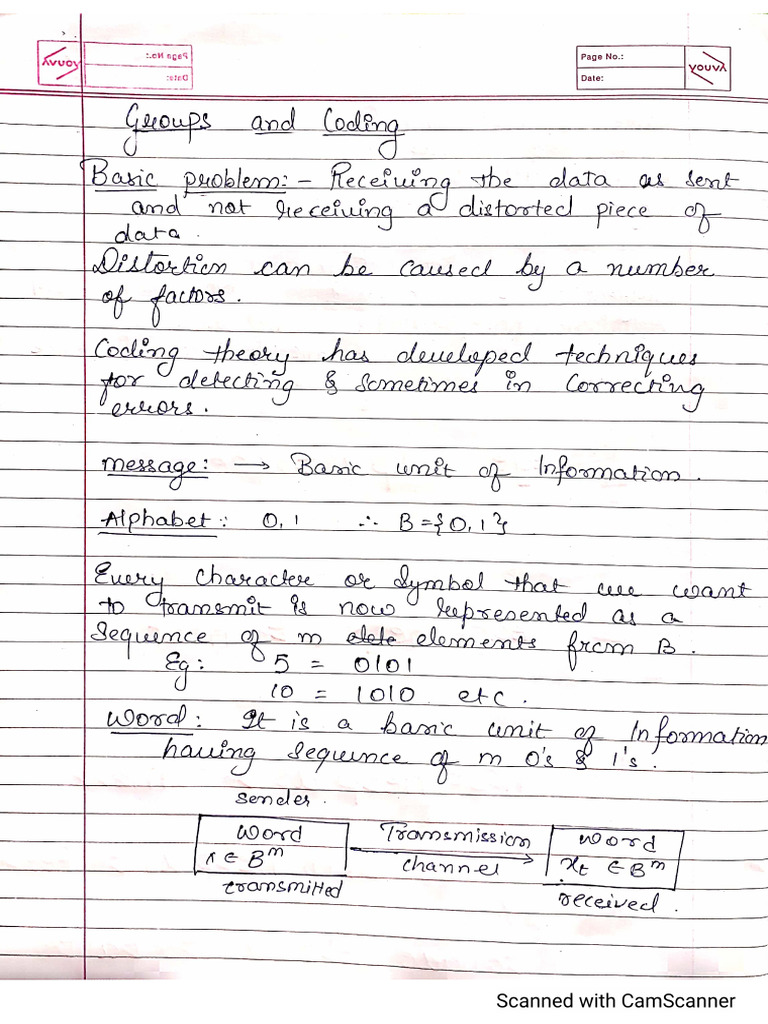 Page No.:
Date:
youva
Page No.:
Date:
youva
Groups and Coding
Basic problem:- Receiving the data as sent
and not receiving a distorted piece of
data.
Distortion can be caused by a number
of factors.
Coding theory has developed techniques
for detecting & sometimes in correcting
errors.
message: → Basic unit of Information.
Alphabet: 0, 1 ∴ B = {0, 1}
Every character or symbol that we want
to transmit is now represented as a
sequence of m elements from B.
Eg: 5 = 0101
10 = 1010 etc.
Word: It is a basic unit of Information
having sequence of m 0's & 1's.
sender.
word Transmission word
x ∈ Bᵐ channel xₜ ∈ Bᵐ
transmitted received.
Scanned with CamScanner